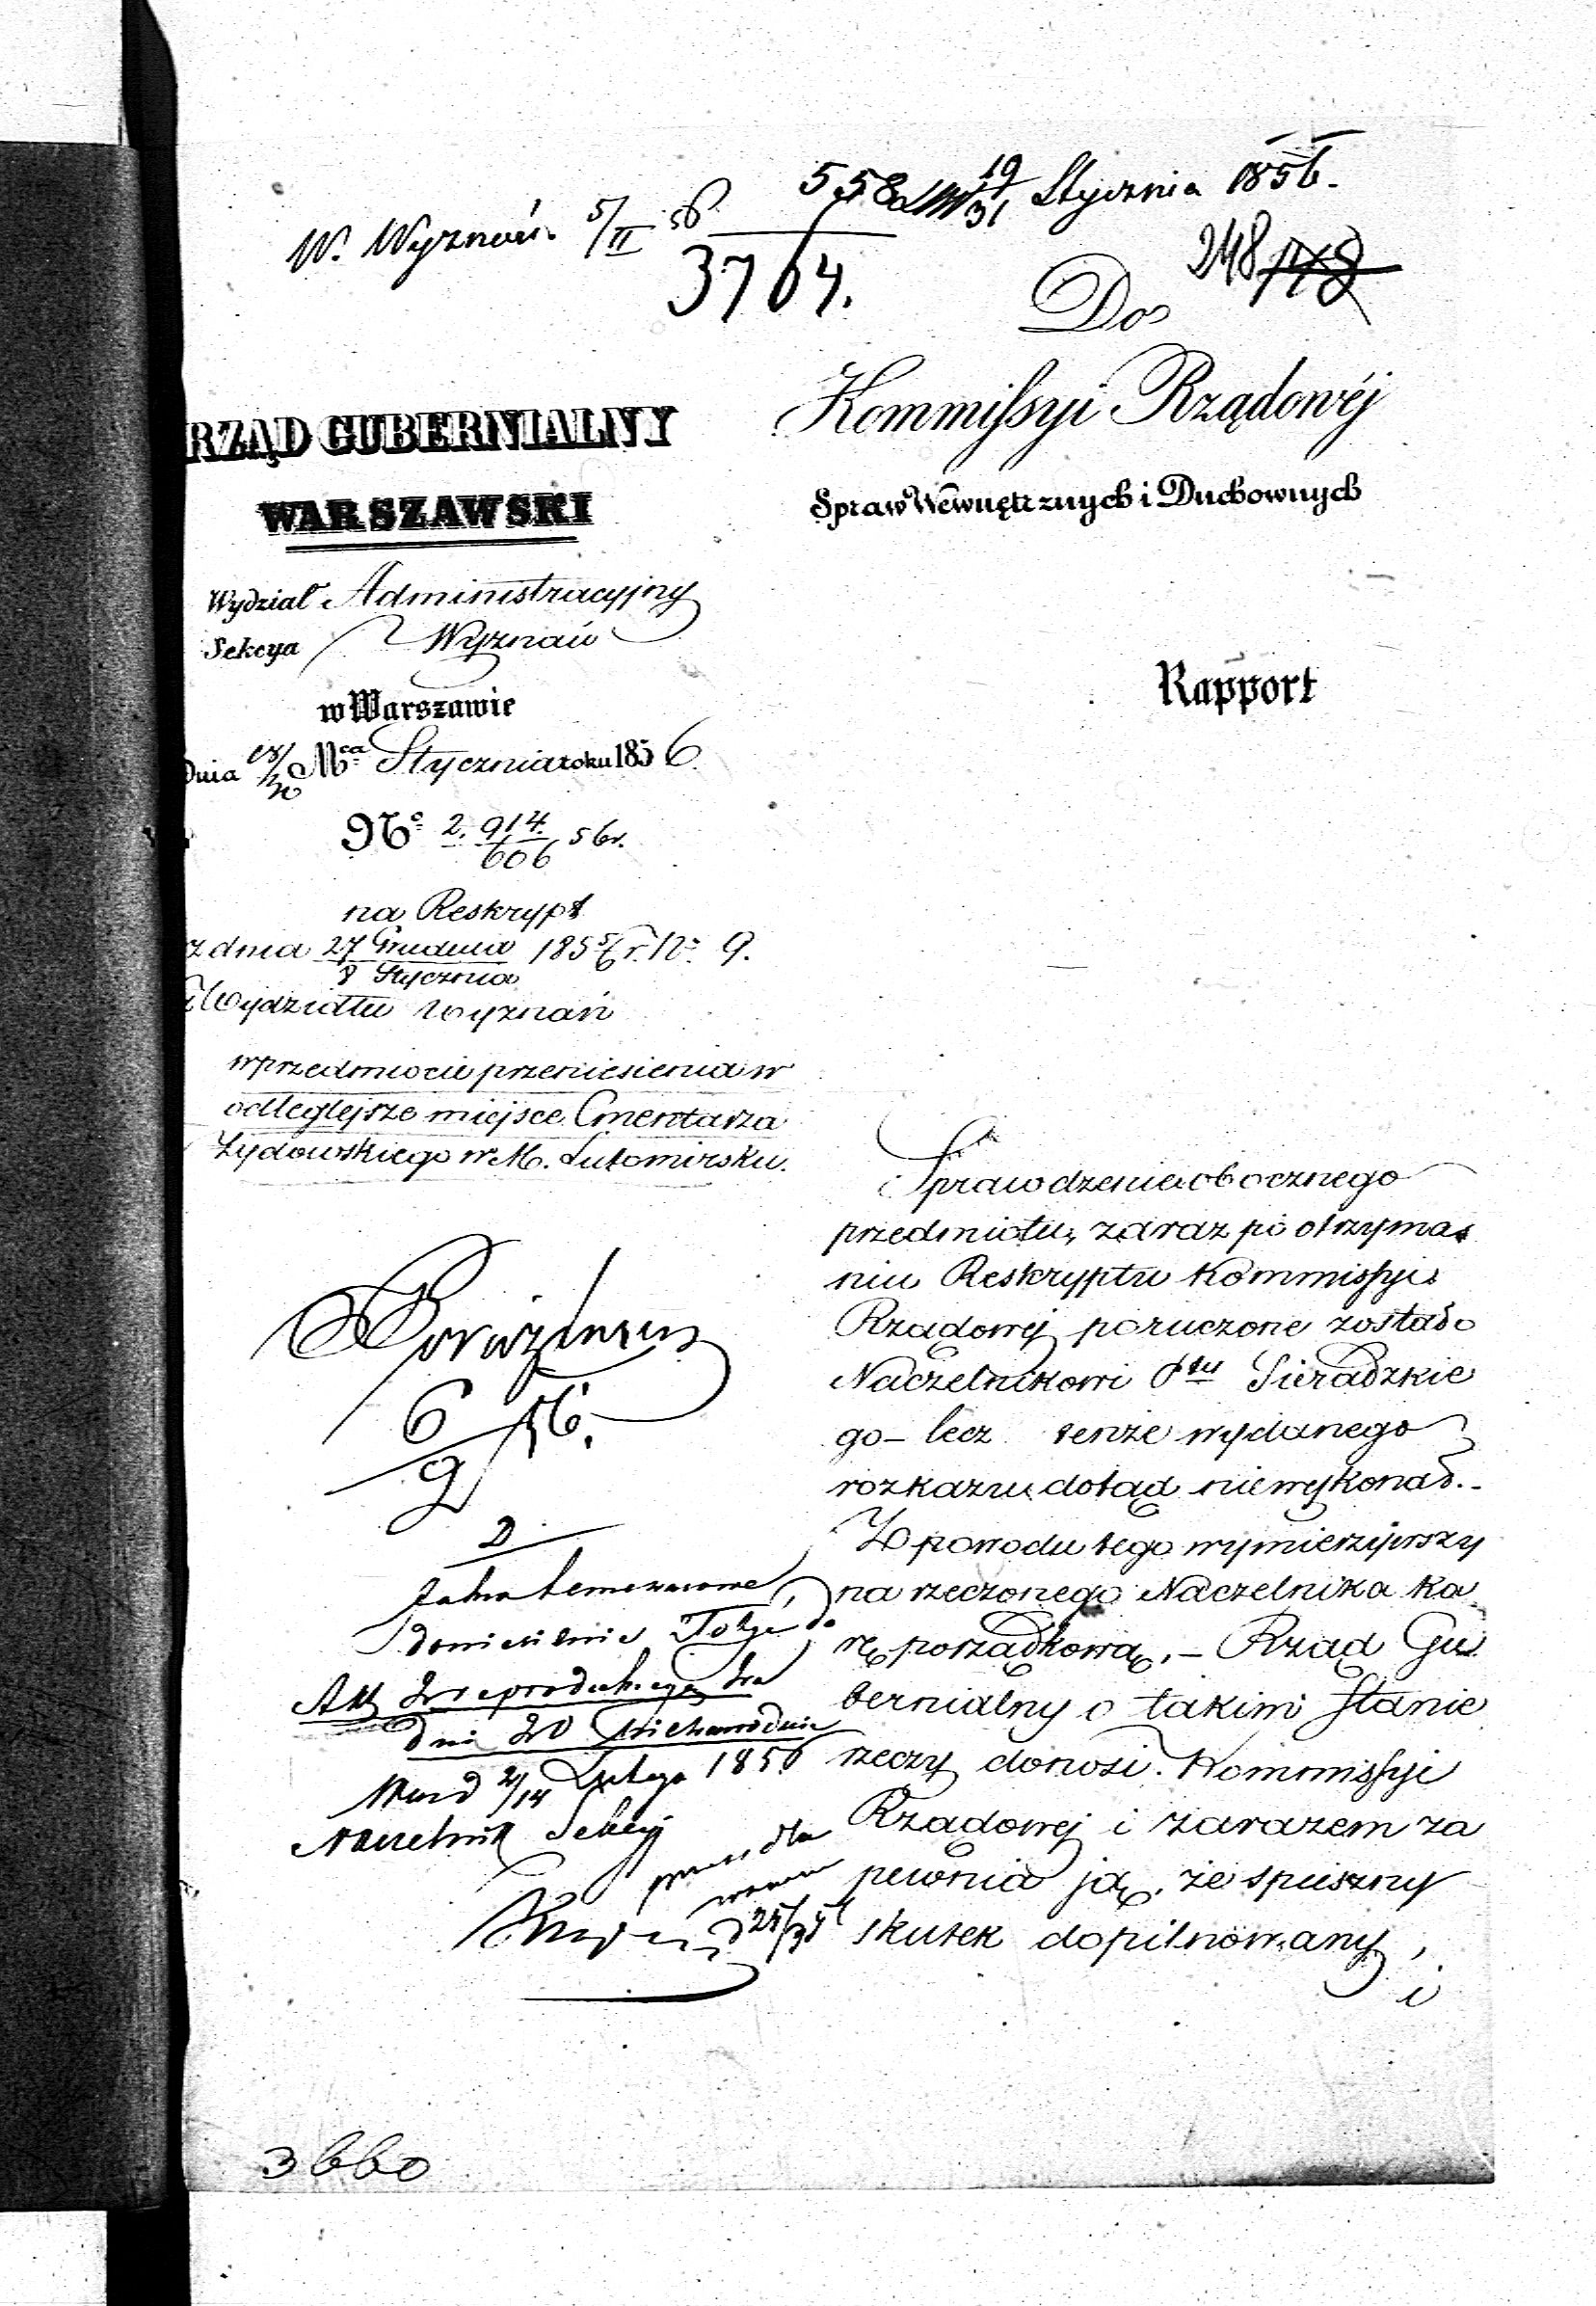 558 19/31 Stycznia 1856.
W. Wyznań 5/II 56
3764.
248
Do
Kommissyi Rządowéj
Spraw Wewnętrznych i Duchownych
Rapport
RZĄD GUBERNIALNY
WARSZAWSKI
Wydział Administracyjny
Sekcya Wyznań
w Warszawie
Dnia Mca Stycznia roku 1856
No 2. 914./606 56r.
na Reskrypt
z dnia 27 Grudnia/8 Stycznia 1855/6 r. No 9.
Wydziału Wyznań
w przedmiocie przeniesienia w
odleglejsze miejsce Cmentarza
Żydowskiego w M. Lutomirsku.
Sprawdzenie obocznego
przedmiotu, zaraz po otrzyma
niu Reskryptu Kommissyi
Rządowej poruczone zostało
Naczelnikowi Ptu Sieradzkie
go – lecz tenże wydanego
rozkazu dotąd nie wykonał. –
Z powodu tego wymierzywszy
na rzeczonego Naczelnika ka
rę porządkową, – Rząd Gu
bernialny o takim stanie
rzeczy donosi Kommissyi
Rządowej i zarazem za
pewnia ją, że spieszny
skutek dopilnowany,
i
6/9 56.
D
doniesienie
dni 20
2/14 Lutego 1856
Naczelnik Sekcyi
3660